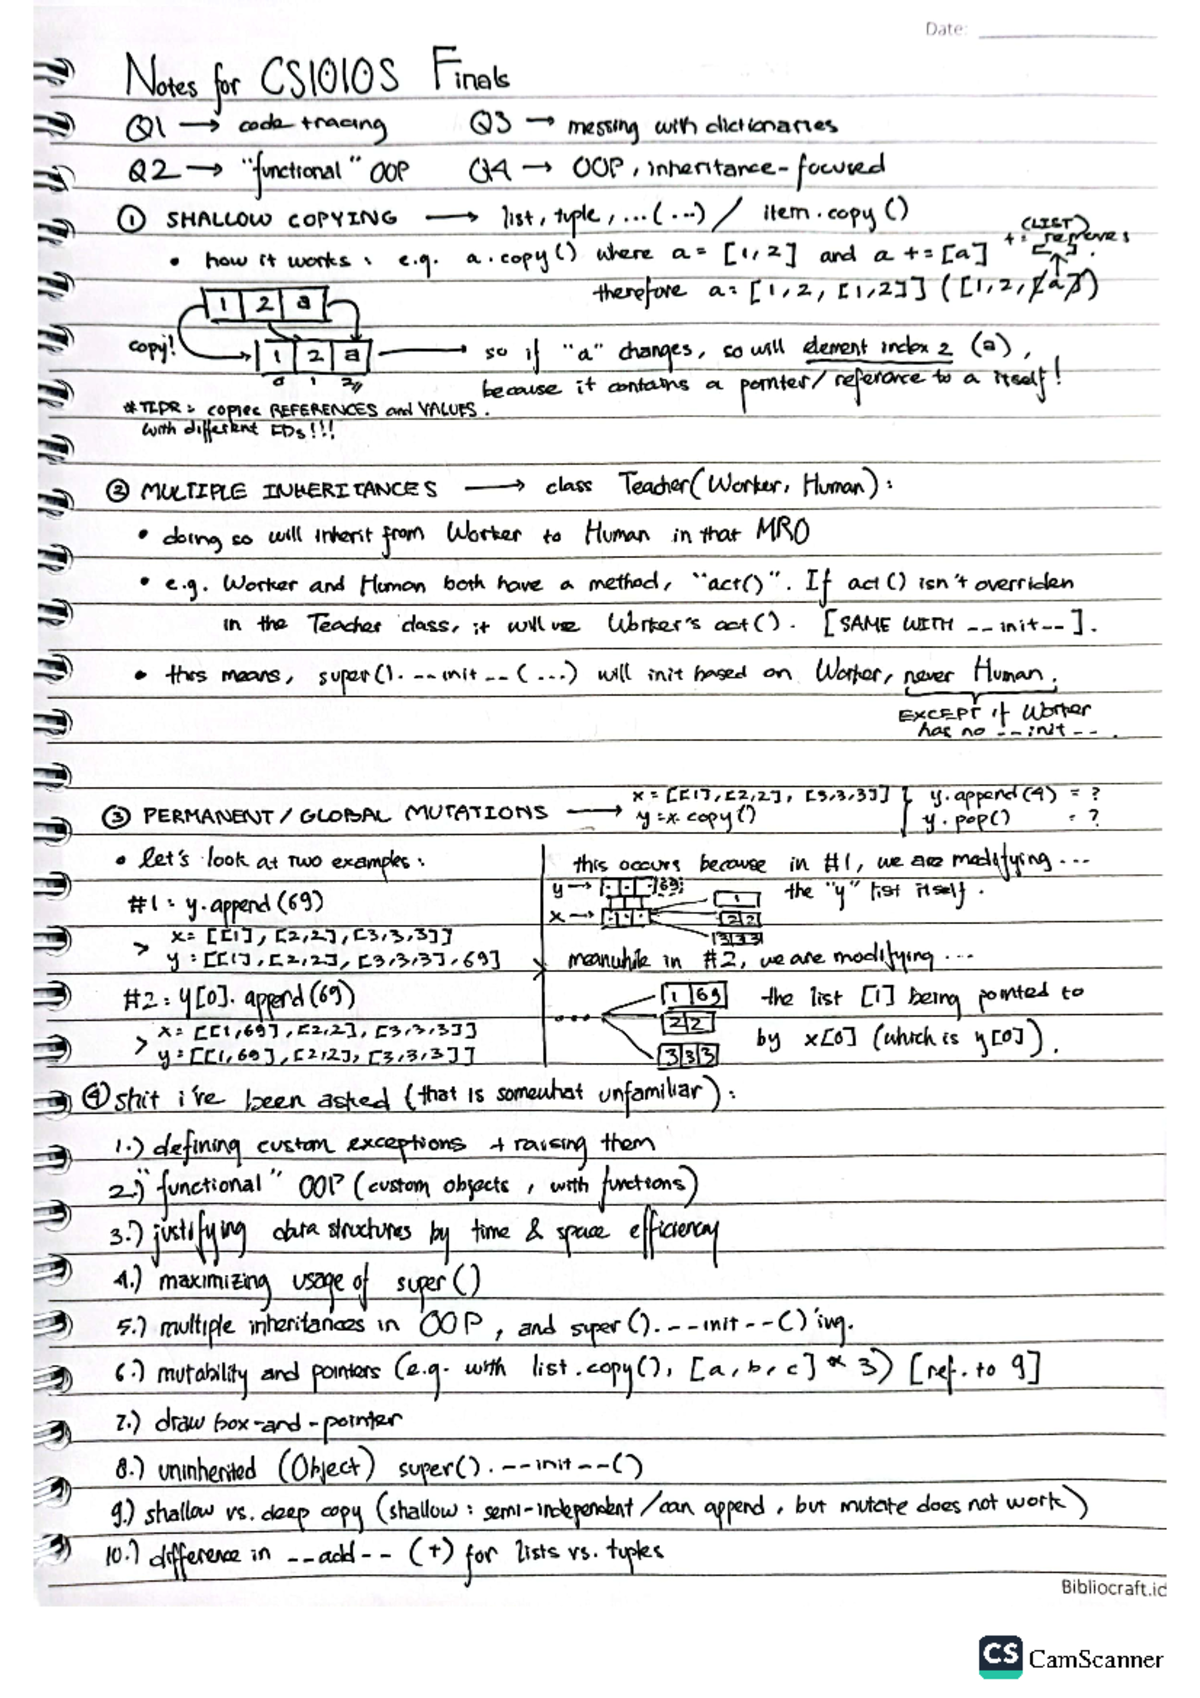 Date:
Notes for CS1010S Finals
Q1 → code tracing Q3 → messing with dictionaries
Q2 → "functional" OOP Q4 → OOP, inheritance-focused
① SHALLOW COPYING → list, tuple, ...(...) / item.copy()
(LIST)
+= removes
[ ].
• how it works: e.g. a.copy() where a = [1,2] and a += [a]
therefore a = [1,2,[1,2]] ([1,2,[a])
1 2 a
copy!
1 2 a → so if "a" changes, so will element index 2 (a),
0 1 2
because it contains a pointer/reference to a itself!
#TLDR: copies REFERENCES and VALUES.
with different IDs!!!
② MULTIPLE INHERITANCES → class Teacher(Worker, Human):
• doing so will inherit from Worker to Human in that MRO
• e.g. Worker and Human both have a method, "act()". If act() isn't overriden
in the Teacher class, it will use Worker's act(). [SAME WITH __init__].
• this means, super().__init__(...) will init based on Worker, never Human.
EXCEPT if Worker
has no __init__.
③ PERMANENT/GLOBAL MUTATIONS → x = [[1],[2,2],[3,3,3]] y.append(4) = ?
y = x.copy() y.pop() = ?
• let's look at two examples:
#1: y.append(69)
> x = [[1],[2,2],[3,3,3]]
y = [[1],[2,2],[3,3,3],69]
#2: y[0].append(69)
> x = [[1,69],[2,2],[3,3,3]]
y = [[1,69],[2,2],[3,3,3]]
this occurs because in #1, we are modifying ...
y → 69 the "y" list itself.
x → 1
2 2
3 3 3
meanwhile in #2, we are modifying ...
1 69 the list [1] being pointed to
... 2 2
by x[0] (which is y[0]).
3 3 3
④ shit i've been asked (that is somewhat unfamiliar):
1.) defining custom exceptions + raising them
2.) "functional" OOP (custom objects, with functions)
3.) justifying data structures by time & space efficiency
4.) maximizing usage of super()
5.) multiple inheritances in OOP, and super().__init__()'ing.
6.) mutability and pointers (e.g. with list.copy(), [a,b,c] * 3) [ref. to 9]
7.) draw box-and-pointer
8.) uninherited (Object) super().__init__()
9.) shallow vs. deep copy (shallow: semi-independent/can append, but mutate does not work)
10.) difference in __add__ (+) for lists vs. tuples
Bibliocraft.id
CS CamScanner